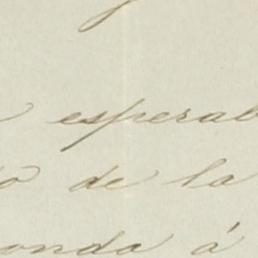 esperab
o de la
onda á